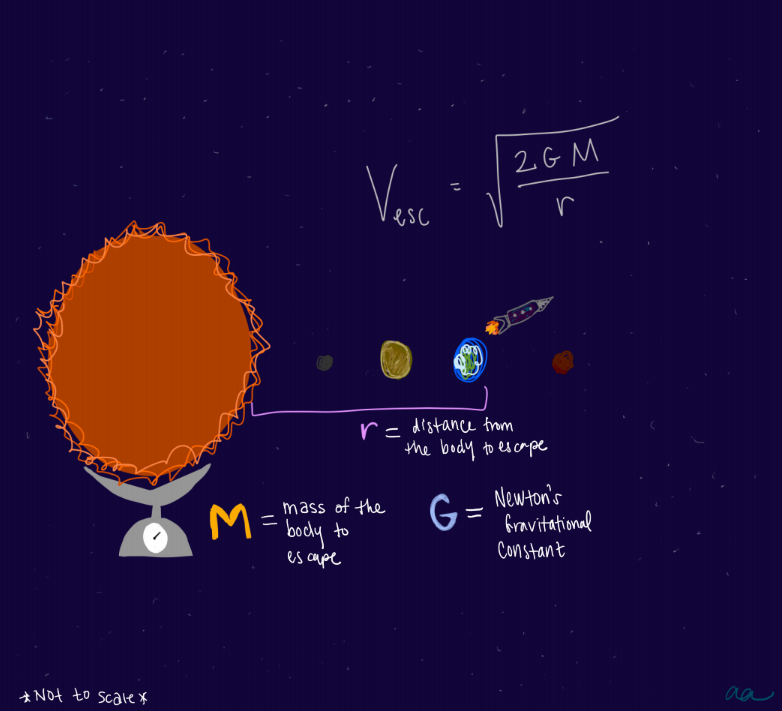 Vesc = √(2GM/r)
r = distance from
the body to escape
M = mass of the
body to
escape
G = Newton's
Gravitational
Constant
*Not to scale*
aa